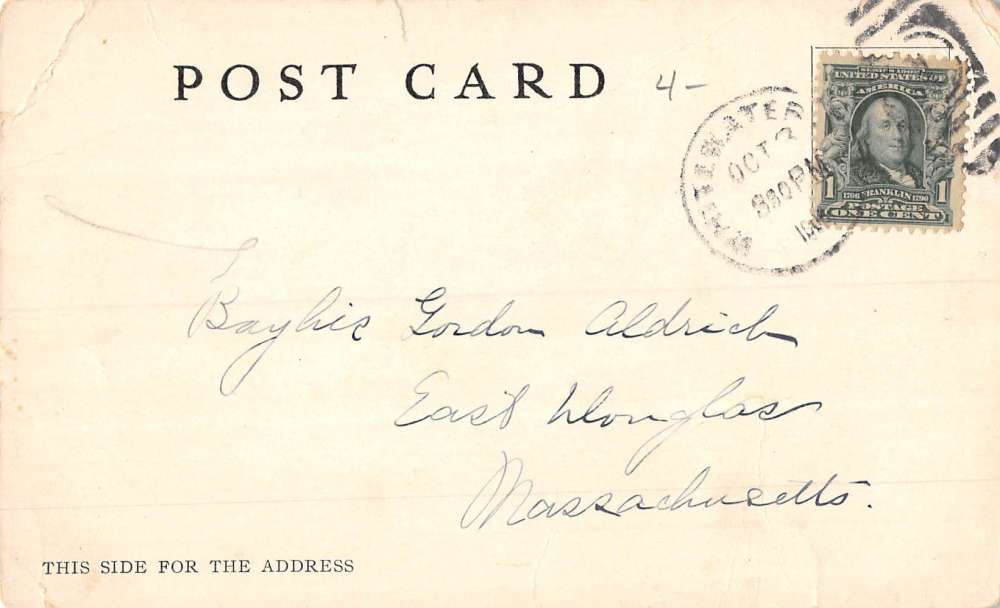 POST CARD
4-
WHITEWATER
OCT
830 PM
190
SERIES 1902
UNITED STATES OF
AMERICA
1 1
1706 FRANKLIN 1790
POSTAGE
ONE CENT
Gordon Aldrich
East Douglas
Massachusetts.
THIS SIDE FOR THE ADDRESS